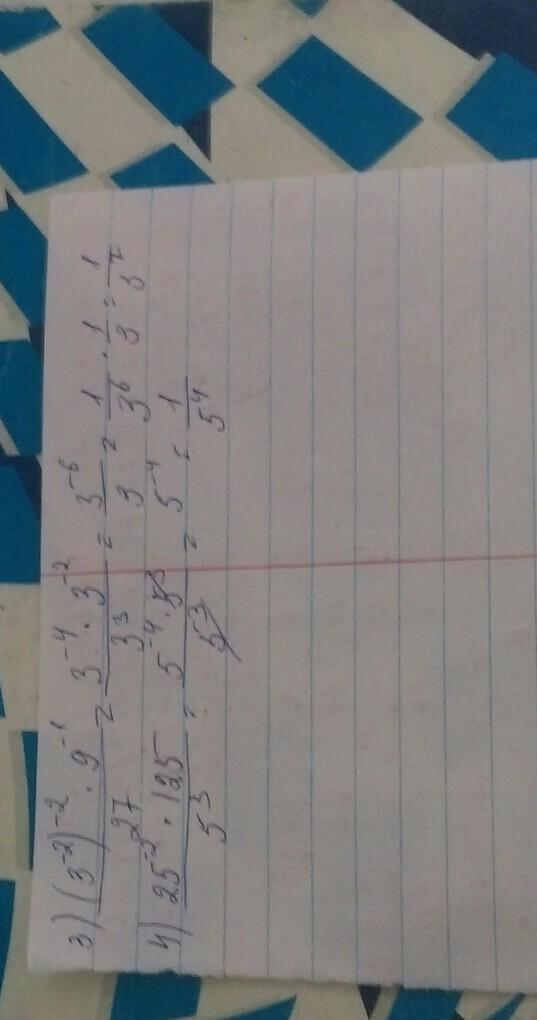 3) (3⁻²)⁻² · 9⁻¹ / 27 = 3⁻⁴ · 3⁻² / 3³ = 3⁻⁶ / 3 = 1/3⁶ · 1/3 = 1/3⁷
4) 25⁻² · 125 / 5³ = 5⁻⁴ · 5³ / 5³ = 5⁻⁴ = 1/5⁴